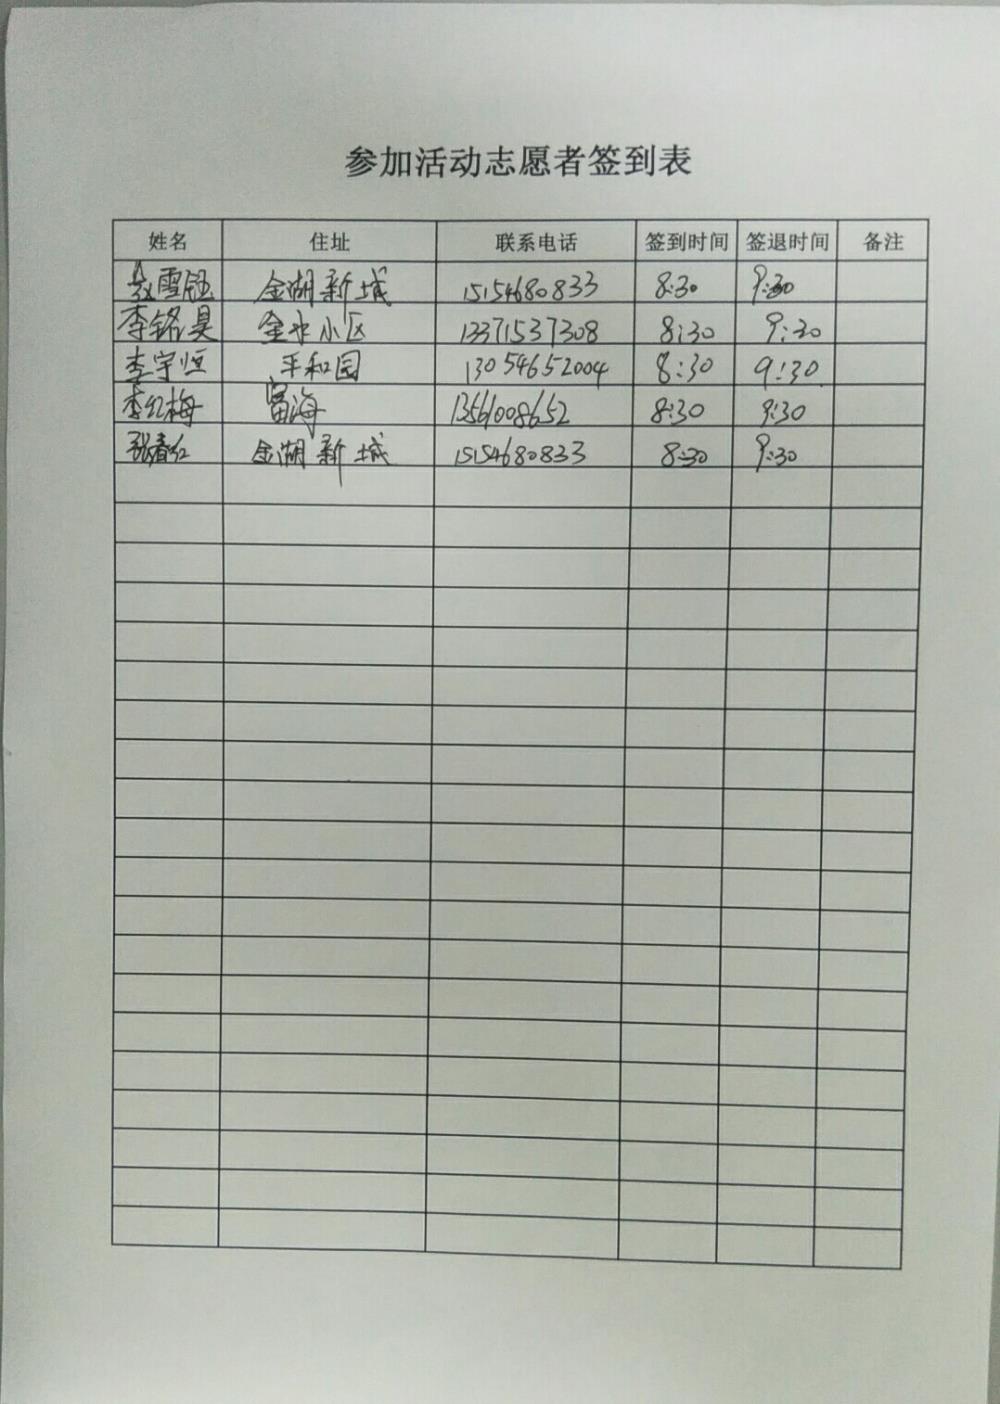 参加活动志愿者签到表
姓名 住址 联系电话 签到时间 签退时间 备注
赵雪钰 金湖新城 15154680833 8:30 9:30
李铭昊 金水小区 13371537308 8:30 9:30
李宇恒 平和园 13054652004 8:30 9:30
李红梅 富海 13561008652 8:30 9:30
张春红 金湖新城 15154680833 8:30 9:30